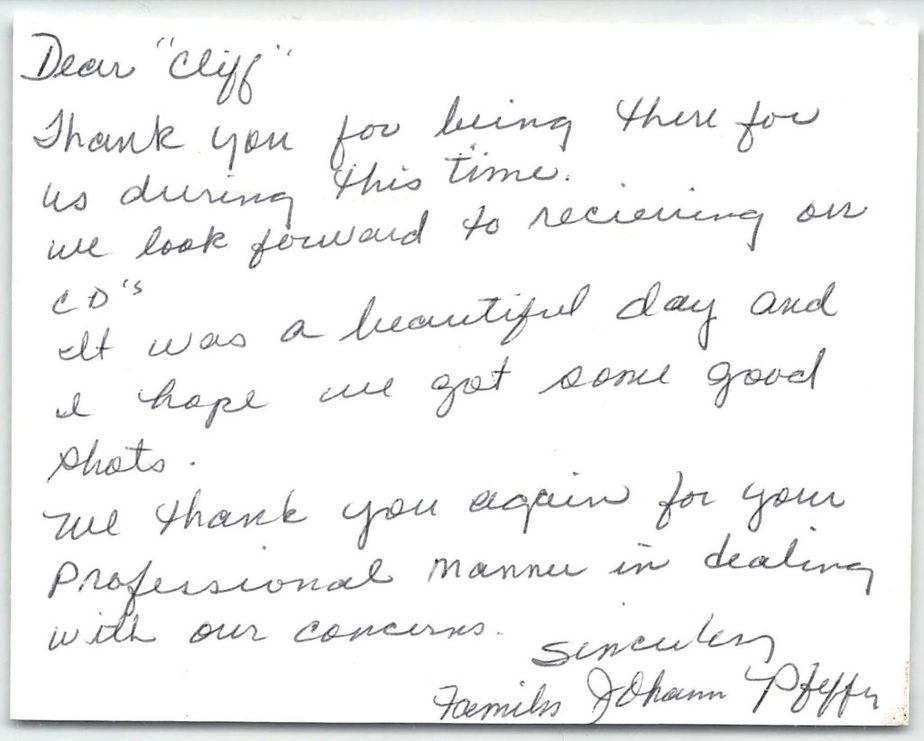 Dear "Cliff"
Thank you for being there for
us during this time.
we look forward to recieving our
CD's
It was a beautiful day and
I hope we got some good
shots.
We thank you again for your
Professional manner in dealing
with our concerns.
Sincerely
Johann Pfeffer